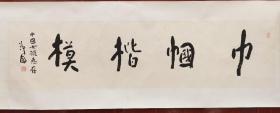 巾幗楷模
中国女排惠存